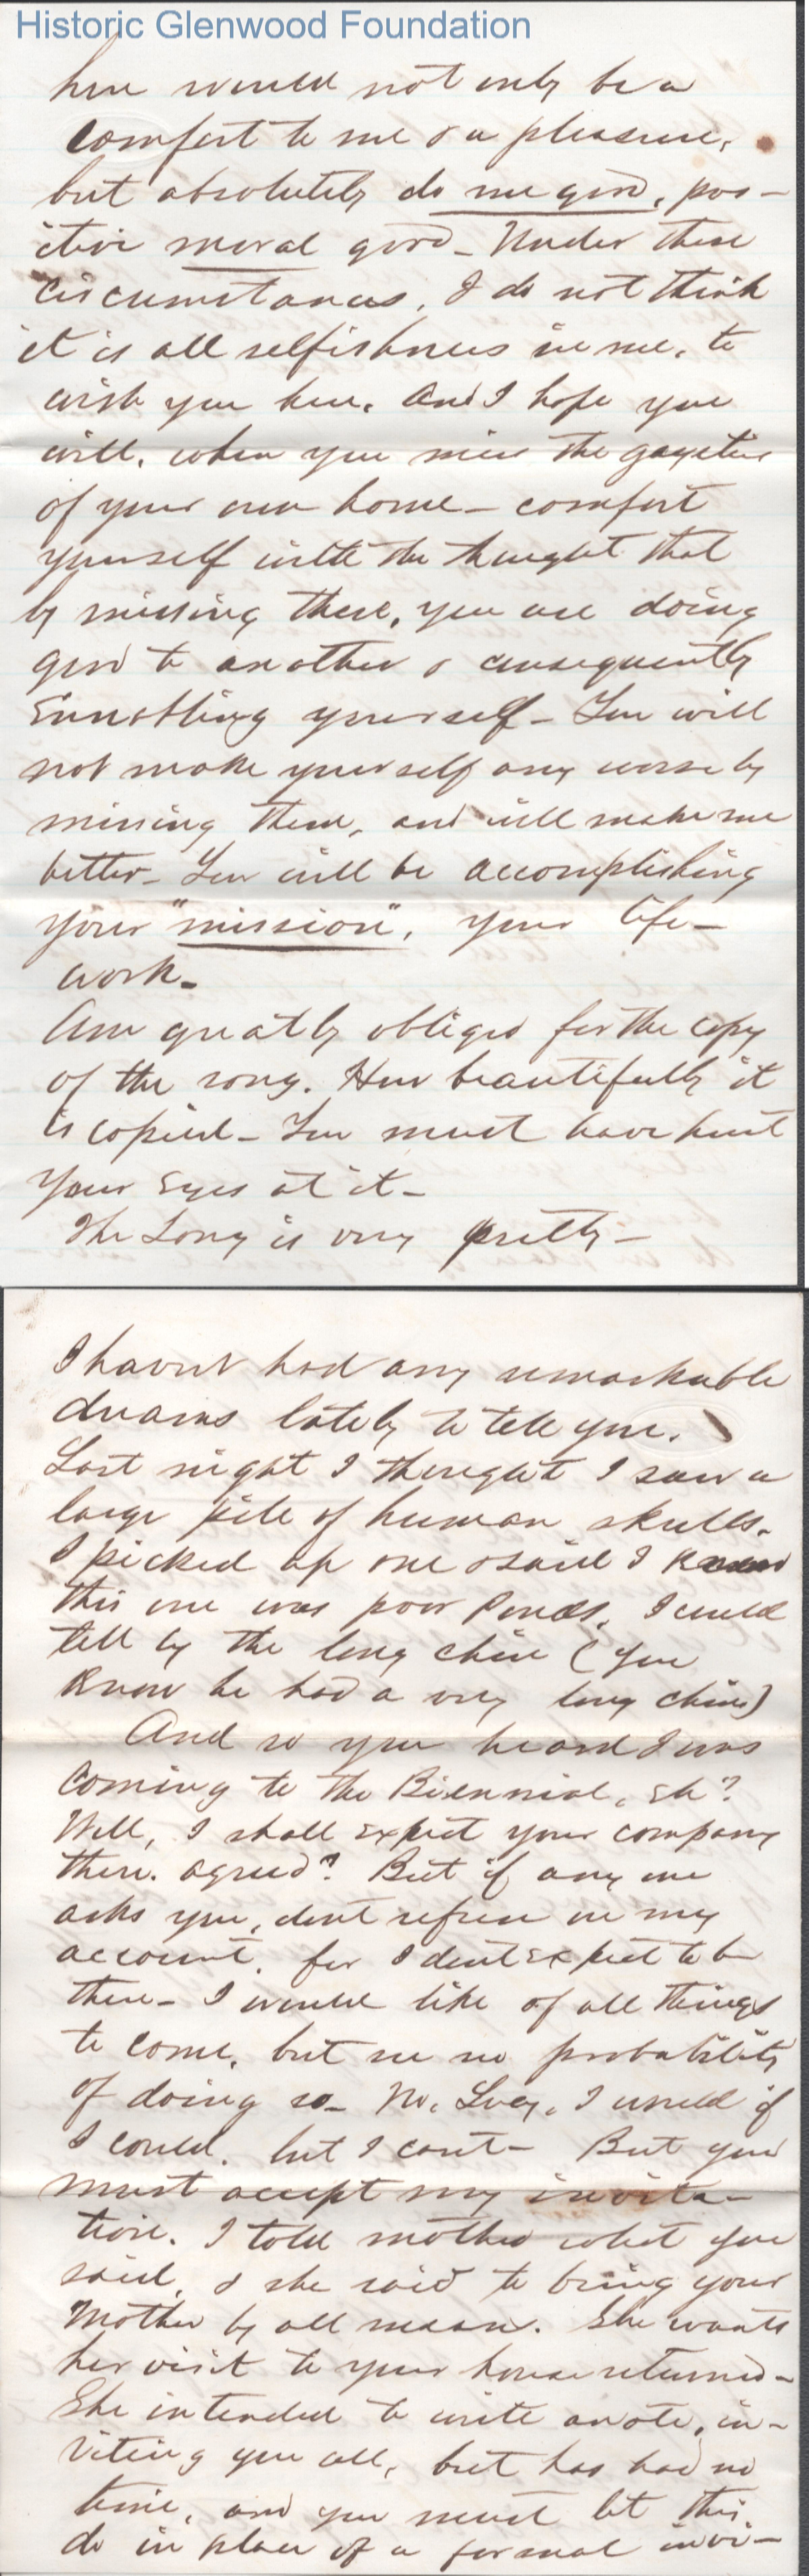 Historic Glenwood Foundation
here would not only be a
comfort to me & a pleasure,
but absolutely do me good, pos-
itive moral good - Under these
circumstances, I do not think
it is all selfishness in me, to
wish you here. And I hope you
will, when you miss the gayeties
of your own home - comfort
yourself with the thought that
by missing these, you are doing
good to another & consequently
Ennobling yourself - You will
not make yourself any worse by
missing them, and will make me
better - You will be accomplishing
your "mission", your life-
work -
Am greatly obliged for the copy
of the song. How beautifully it
is copied - You must have hurt
your Eyes at it -
The Song is very pretty -
I havent had any remarkable
dreams lately to tell you.
Last night I thought I saw a
large pile of human skulls.
I picked up one & said I know
this one was poor Ponds, I could
tell by the long chin (you
know he had a very long chin)
And so you heard I was
coming to the Biennial, Eh?
Well, I shall expect your company
there. agreed? But if any one
asks you, dont refuse on my
account, for I dont Expect to be
there - I would like of all things
to come, but see no probability
of doing so - No, Lucy, I would if
I could, but I cant - But you
must accept my invita-
tion. I told mother what you
said, & she said to bring your
Mother by all means. She wants
her visit to your house returned -
She intended to write a note, in-
viting you all, but has had no
time, and you must let this
do in place of a formal invi-